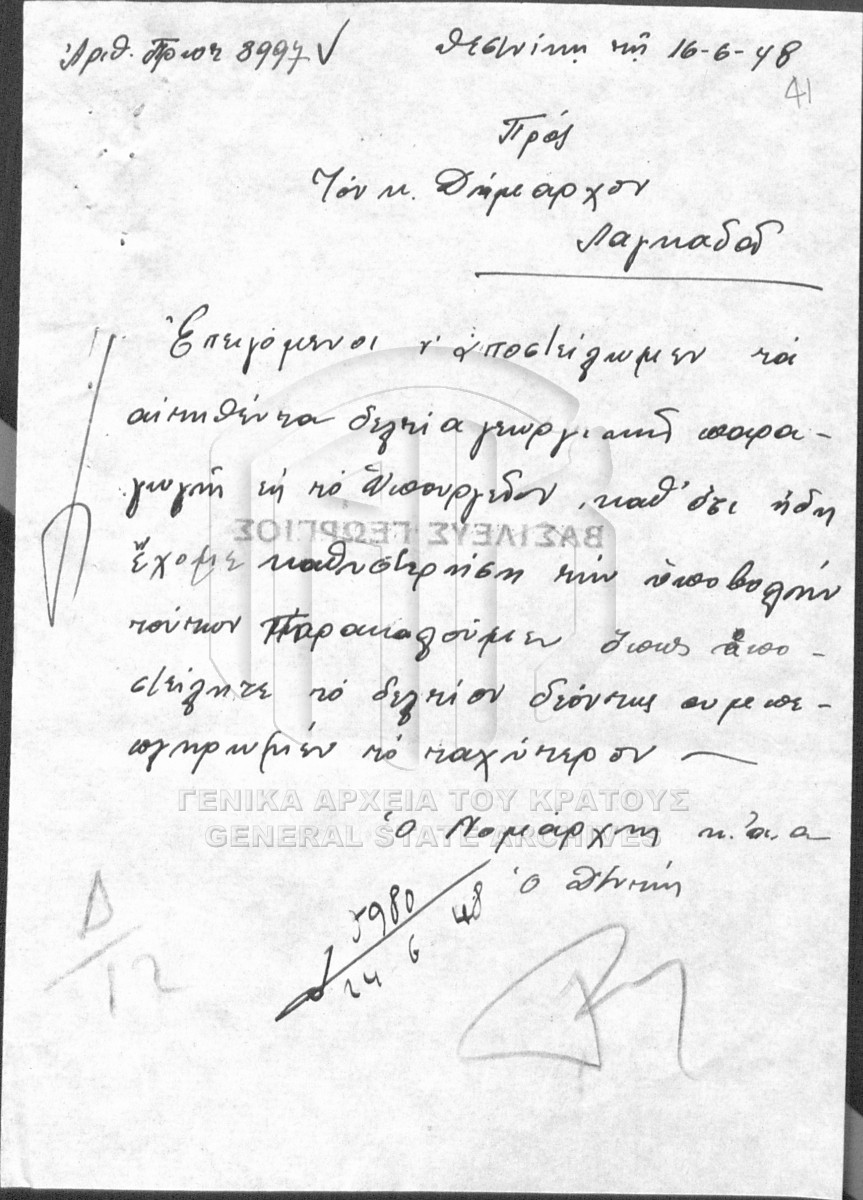 Ἀριθ. Πρωτ 8997 Θεσ/νίκη τῇ 16-6-48
41
Πρός
Τόν κ. Δήμαρχον
Λαγκαδᾶ
Ἐπειγόμενοι ν' ἀποστείλωμεν τά
αἰτηθέντα δελτία γεωργικῆς παρα-
γωγῆς εἰς τό Ὑπουργεῖον, καθ' ὅτι ἤδη
ἔχομε καθυστερήση τήν ὑποβολήν
τούτων Παρακαλοῦμεν ὅπως ἀπο-
στείλητε τό δελτίον δεόντως συμπε-
πληρωμέν τό ταχύτερον
ΒΑΣΙΛΕΥΣ ΓΕΩΡΓΙΟΣ
ΓΕΝΙΚΑ ΑΡΧΕΙΑ ΤΟΥ ΚΡΑΤΟΥΣ
GENERAL STATE ARCHIVES
Ὁ Νομάρχης κ.ἀ.α
Ὁ Δ/ντής
5980
24 6 48
Δ/12